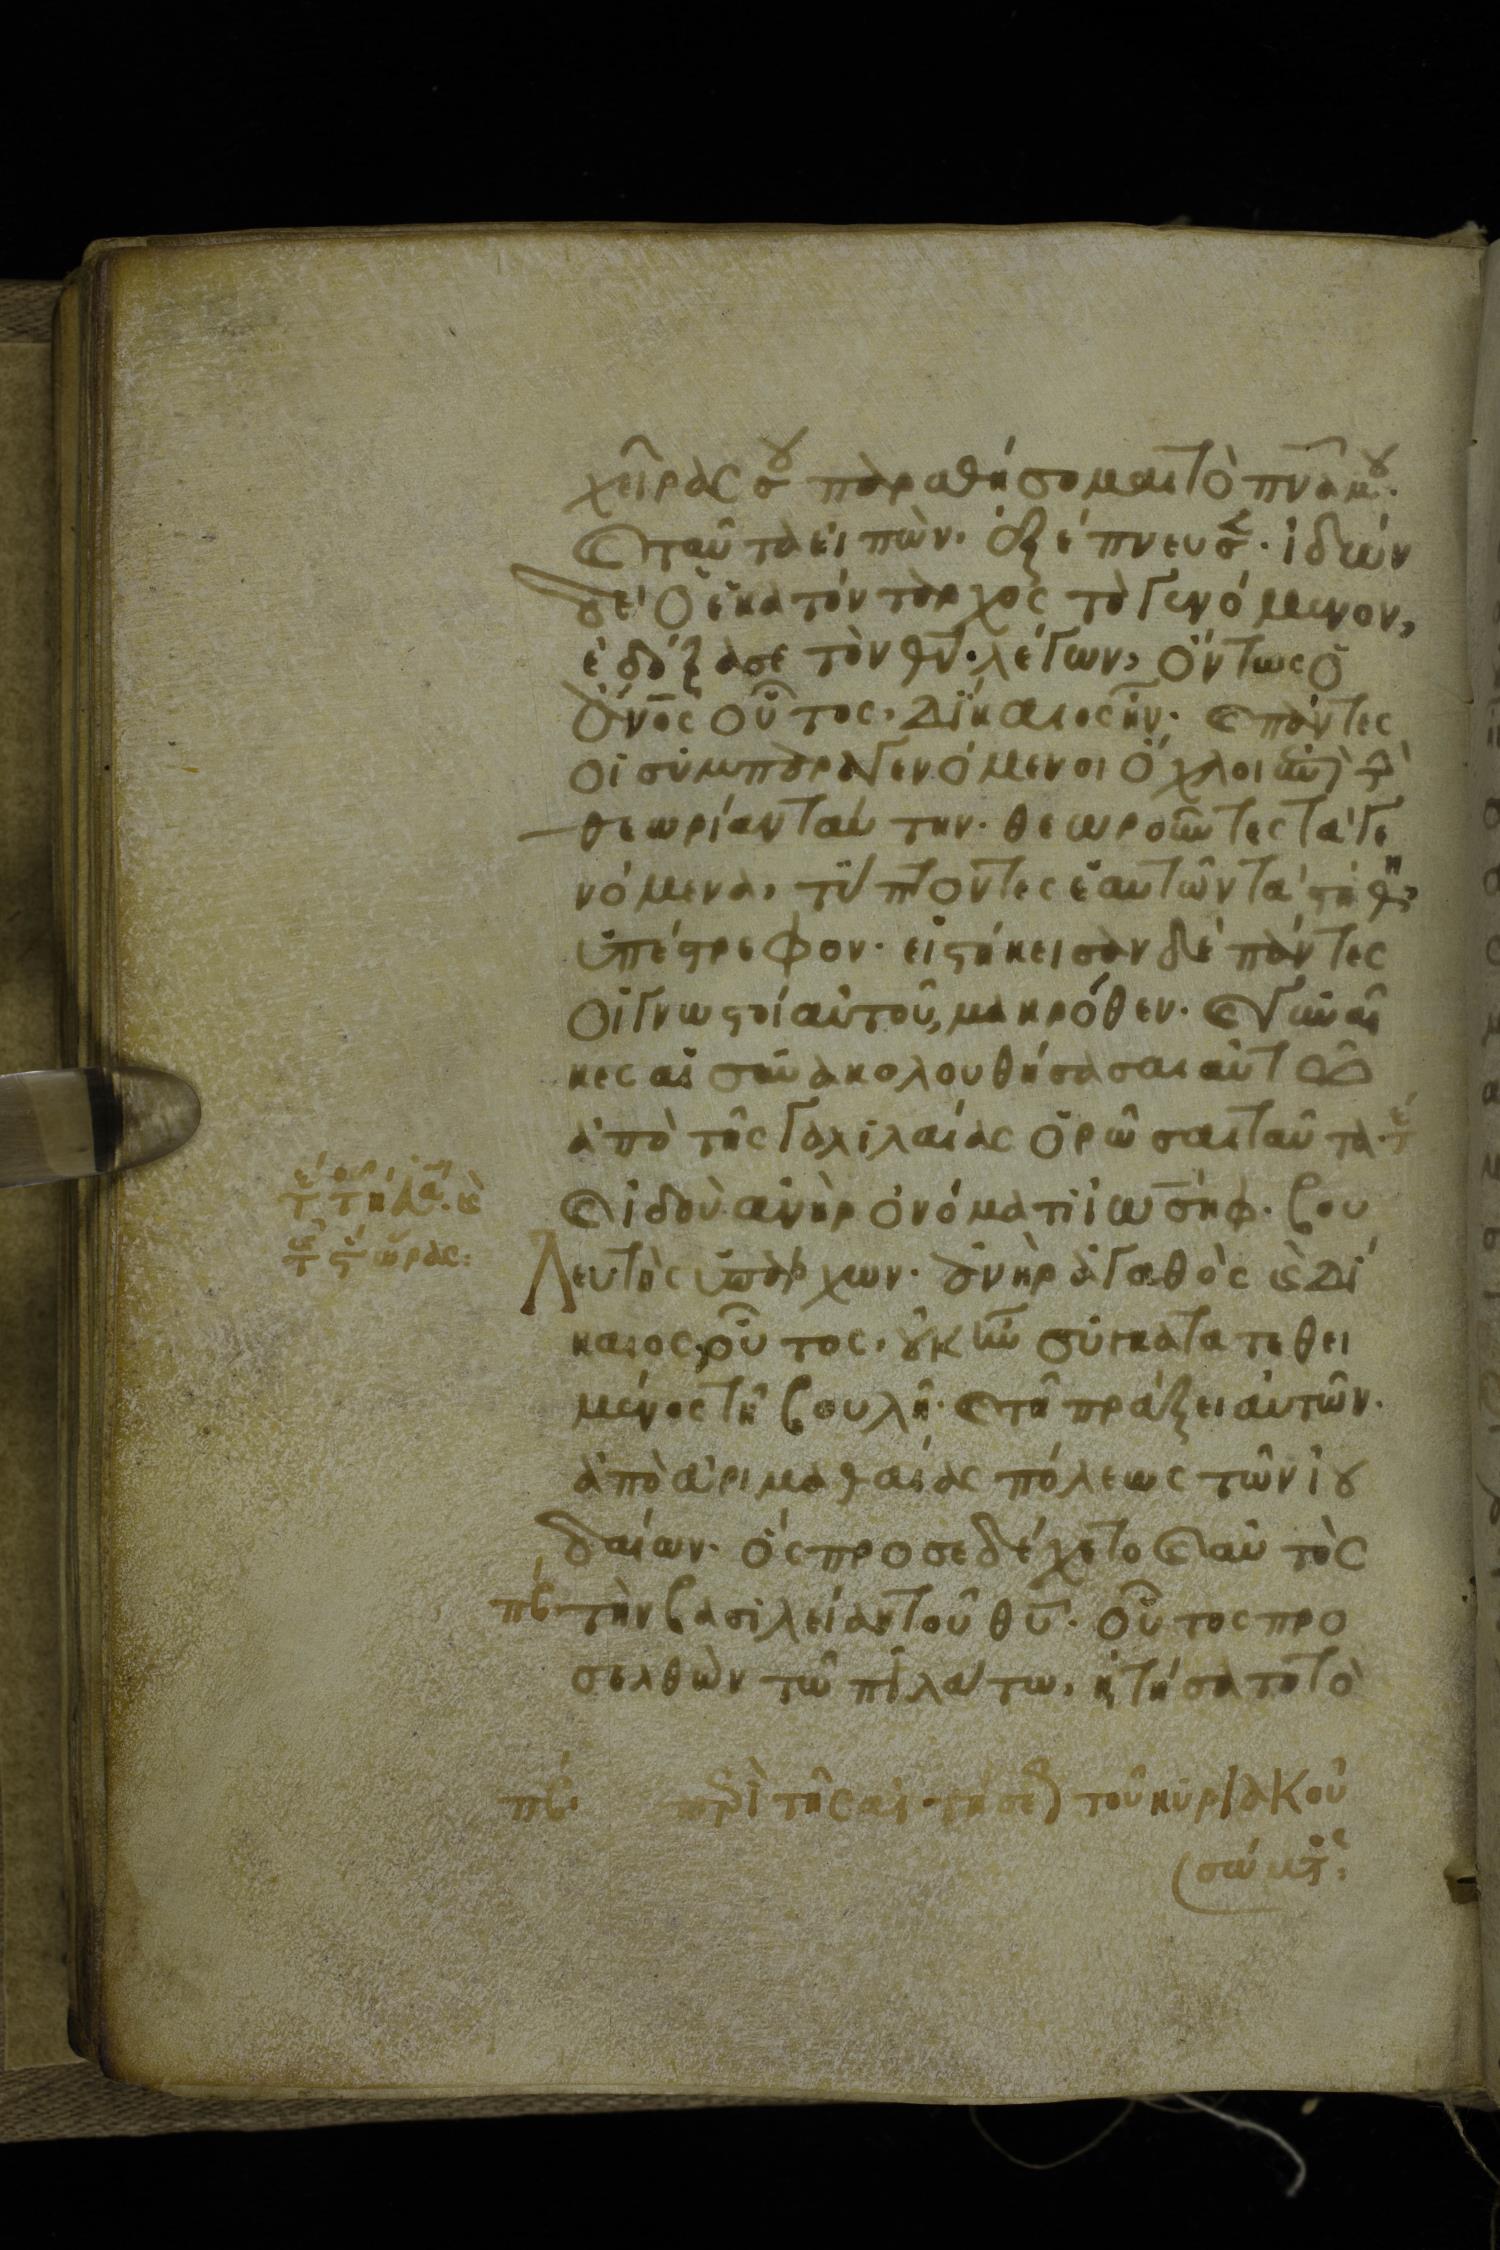 χεῖράς σου παραθήσομαι τὸ πνᾶ μου·
καὶ ταῦτα εἰπὼν· ἐξέπνευσεν· ἰδὼν
δὲ ὁ ἑκατόνταρχος τὸ γενόμενον,
ἐδόξασε τὸν θν̄· λέγων, ὄντως ὁ
ἄνο̄ς οὗτος, δίκαιος ἦν· καὶ πάντες
οἱ συμπαραγενόμενοι ὄχλοι ἐπὶ τὴν
θεωρίαν ταύτην· θεωροῦντες τὰ γε
νόμενα, τύπτοντες ἑαυτῶν τὰ στήθη,
ὑπέστρεφον· εἰστήκεισαν δὲ πάντες
οἱ γνωστοὶ αὐτοῦ, μακρόθεν· καὶ γυναῖ
κες αἱ συνακολουθήσασαι αὐτῶ
ἀπὸ τῆς Γαλιλαίας ὁρῶσαι ταῦτα·
καὶ ἰδοὺ ἀνὴρ ὀνόματι ἰωσὴφ· βου
λευτὴς ὑπάρχων· ἀνὴρ ἀγαθὸς καὶ δί
καιος, οὗτος, οὐκ ἦν συγκατατεθει
μένος τῆ βουλῆ· καὶ τῆ πράξει αὐτῶν·
ἀπὸ ἀριμαθαίας πόλεως τῶν ἰου
δαίων· ὃς προσεδέχετο καὶ αὐτὸς
πβ τὴν βασιλείαν τοῦ θῡ· οὗτος προ
σελθὼν τῶ πιλάτω, ἠτήσατο τὸ
πβ· περὶ τῆς αἰτήσε τοῦ κυριακοῦ
σώματος